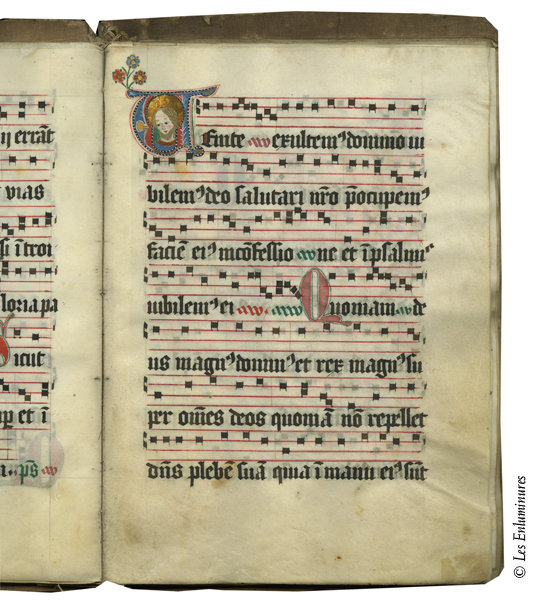 ij errāt
vias
si ī troi
loria pa
icut
et ī
ps
Venite exultemꝰ domino iu
bilemꝰ deo salutari nr̄o p̄ocupemꝰ
faciē eiꝰ in cōfessio ne et ī psalmiˢ
iubilemꝰ ei Quoniam de
us magnꝰ dominꝰ et rex magnꝰ su
per om̄es deos quoniā nō repellet
dn̄s plebē suā quia ī manu eiꝰ sūt
© Les Enluminures